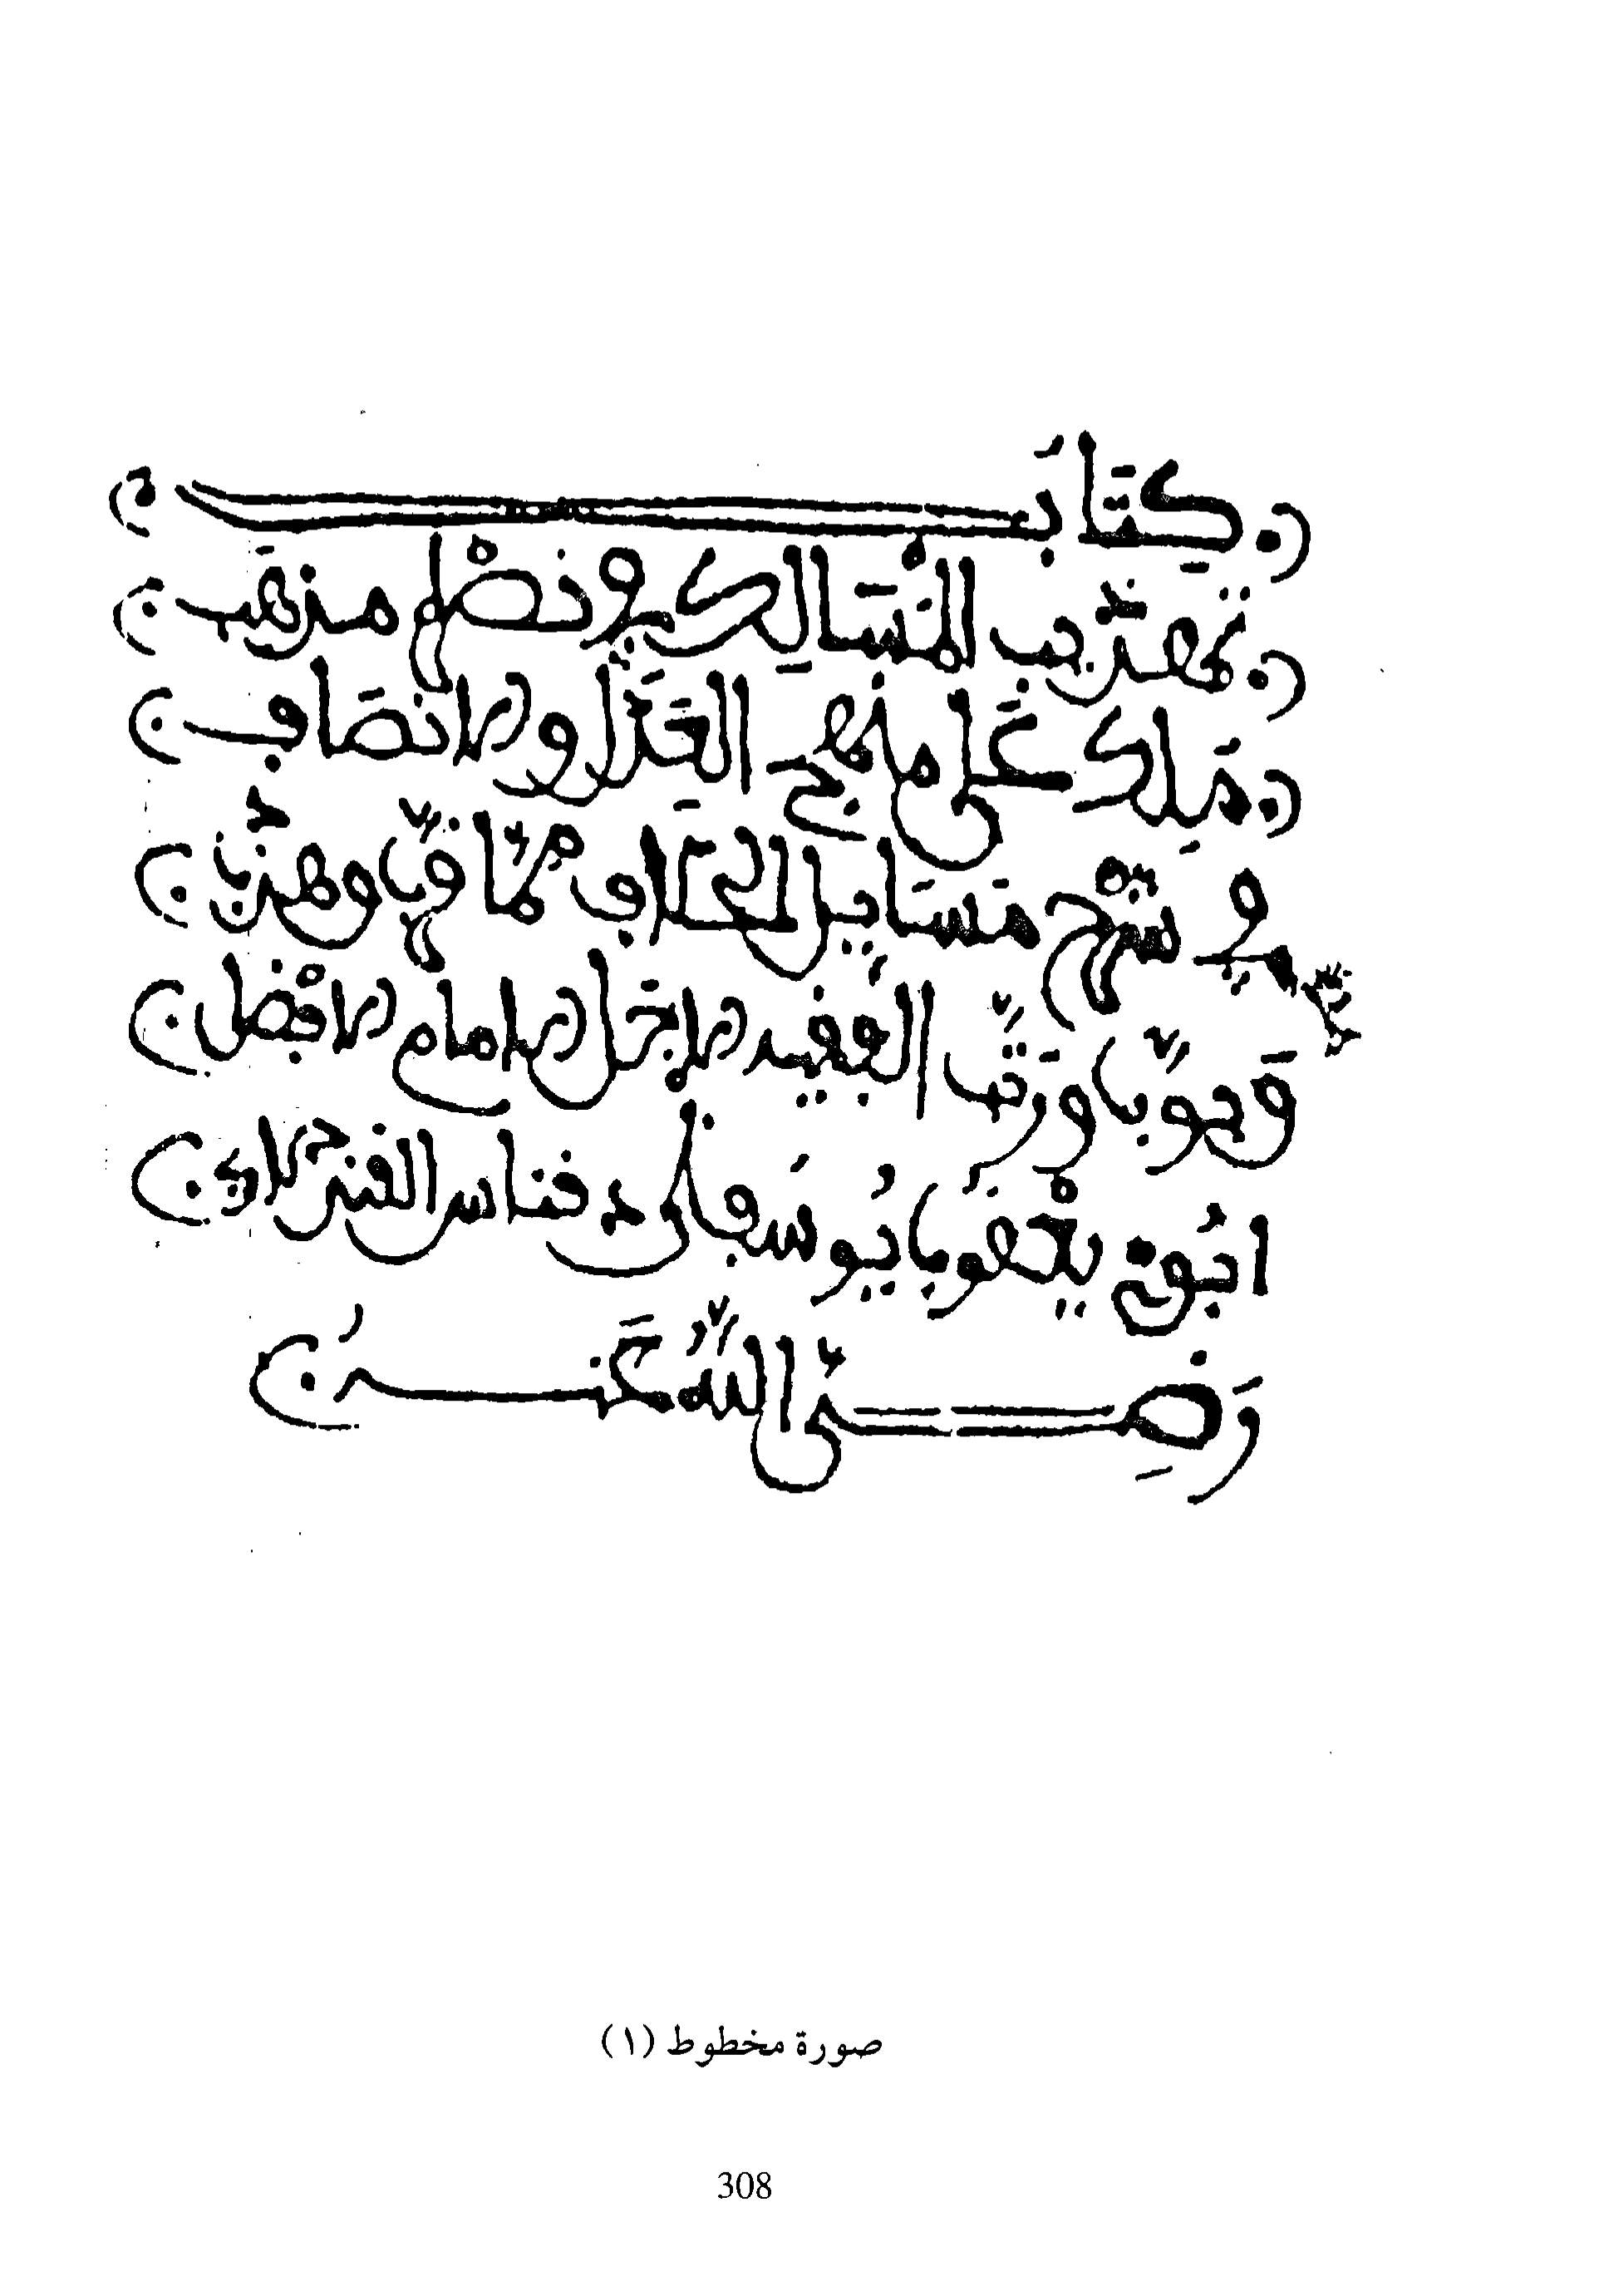 كِتَابُ
تهذيب المسالك في نصْر مذهب
مَلِك على منهج العَدْل والانصاف
في شرْح مسَايل الخلاف ممّا فرّق وهذّب
وَبوّبا ورتّب الفقيه الاجَلّ الامام الافْضل
ابُو يعْقوب يُوسف بن دوناس الفندلاوي
رَضِيَ اللّهُ عَنهُ
صورة مخطوط (١)
308